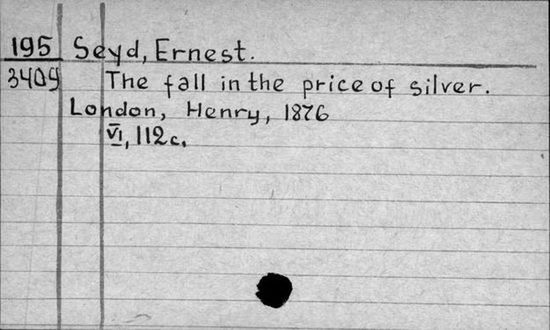 195 Seyd, Ernest.
3409 The fall in the price of silver.
London, Henry, 1876
VI, 112 c.